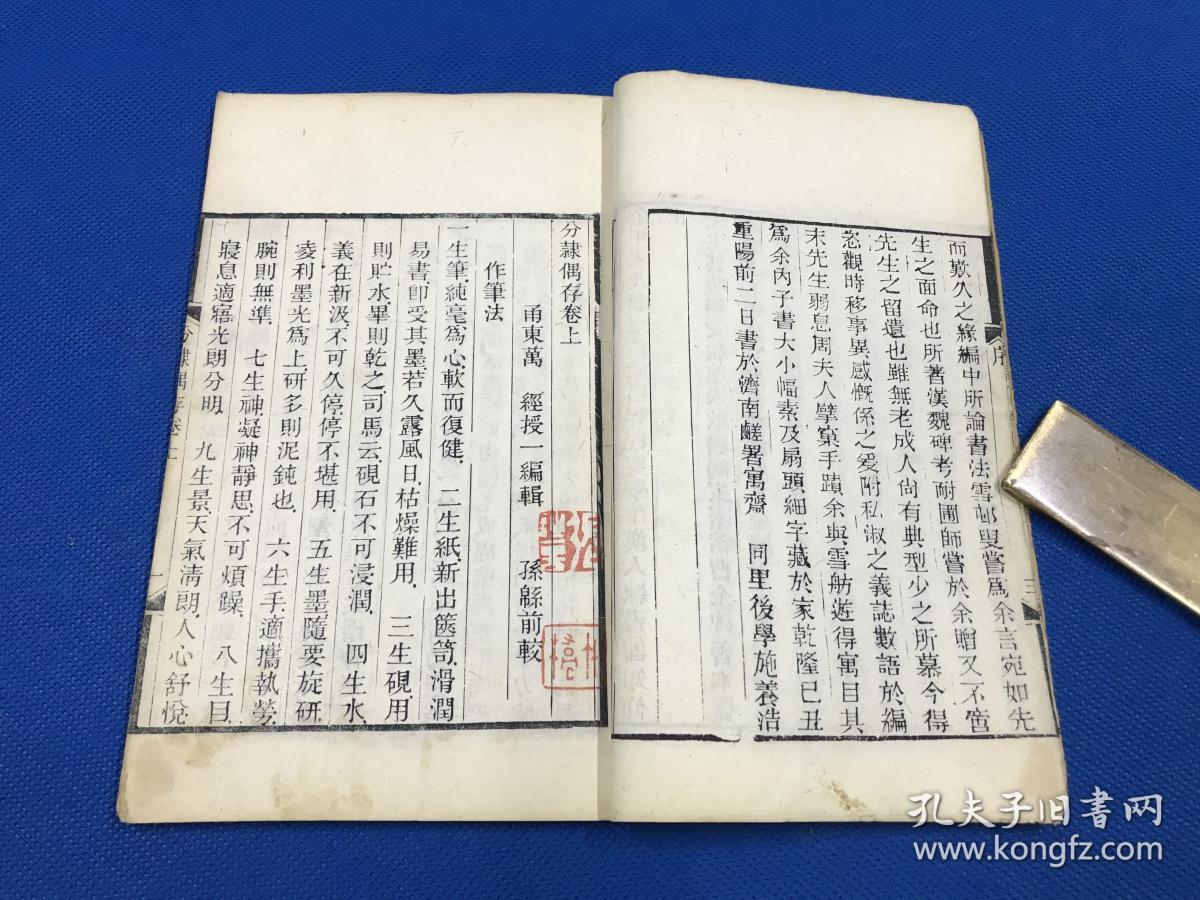 而歎久之緣編中所論書法雪邨叟嘗爲余言宛如先
生之面命也所著漢魏碑考耐圃師嘗於余贈又不啻
先生之留遺也雖無老成人尙有典型少之所慕今得
恣觀時移事異感慨係之爰附私淑之義誌數語於編
末先生弱息周夫人擘窠手蹟余與雪舫遊得寓目其
爲余內子書大小幅素及扇頭細字藏於家乾隆己丑
重陽前二日書於濟南鹺署寓齋 同里後學施養浩
序
三
分隷偶存卷上
甬東萬 經授一編輯 孫緜前較
作筆法
一生筆純毫爲心軟而復健 二生紙新出篋笥滑潤
易書卽受其墨若久露風日枯燥難用 三生硯用
則貯水畢則乾之司馬云硯石不可浸潤 四生水
義在新汲不可久停停不堪用 五生墨隨要旋研
凌利墨光爲上研多則泥鈍也 六生手適攜執勞
腕則無準 七生神凝神靜思不可煩躁 八生目
寢息適寤光朗分明 九生景天氣淸朗人心舒悅
分隷偶存卷上
一
孔夫子旧书网
www.kongfz.com